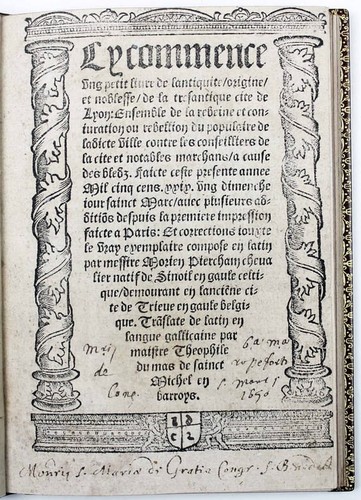 Cy commence
vng petit liure de lantiquite/origine/
et noblesse/de la tresantique cite de
Lyon: Ensemble de la rebeine et con-
iuration ou rebellion du populaire de
ladicte ville contre les conseilliers de
la cite et notables marchans/a cause
des bledz. Faicte ceste presente annee
Mil cinq cens. xxix. vng dimenche
iour sainct Marc/auec plusieurs ad-
ditiõs despuis la premiere impression
faicte a Paris: Et corrections iouxte
le vray exemplaire compose en latin
par messire Morien Piercham cheua
lier natif de Sinoil en gaule celti-
que/demourant en lanciẽne ci-
te de Trieue en gaule belgi-
que. Trãslate de latin en
langue gallicaine par
maistre Theophile
du mas de sainct
Michel en
barroys.
de
1650
Monrij S. Mariæ de Gratia Congr. S. Benedicti